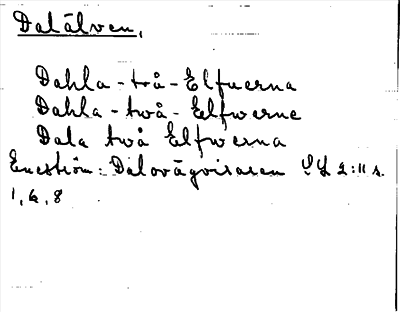 Dalälven,
Dahla-två-Elfwerna
Dahla-twå-Elfwerne
Dala två Elfwerna
Eneström: Dalovägvisaren SvL 2:11 s.
1, 6, 8